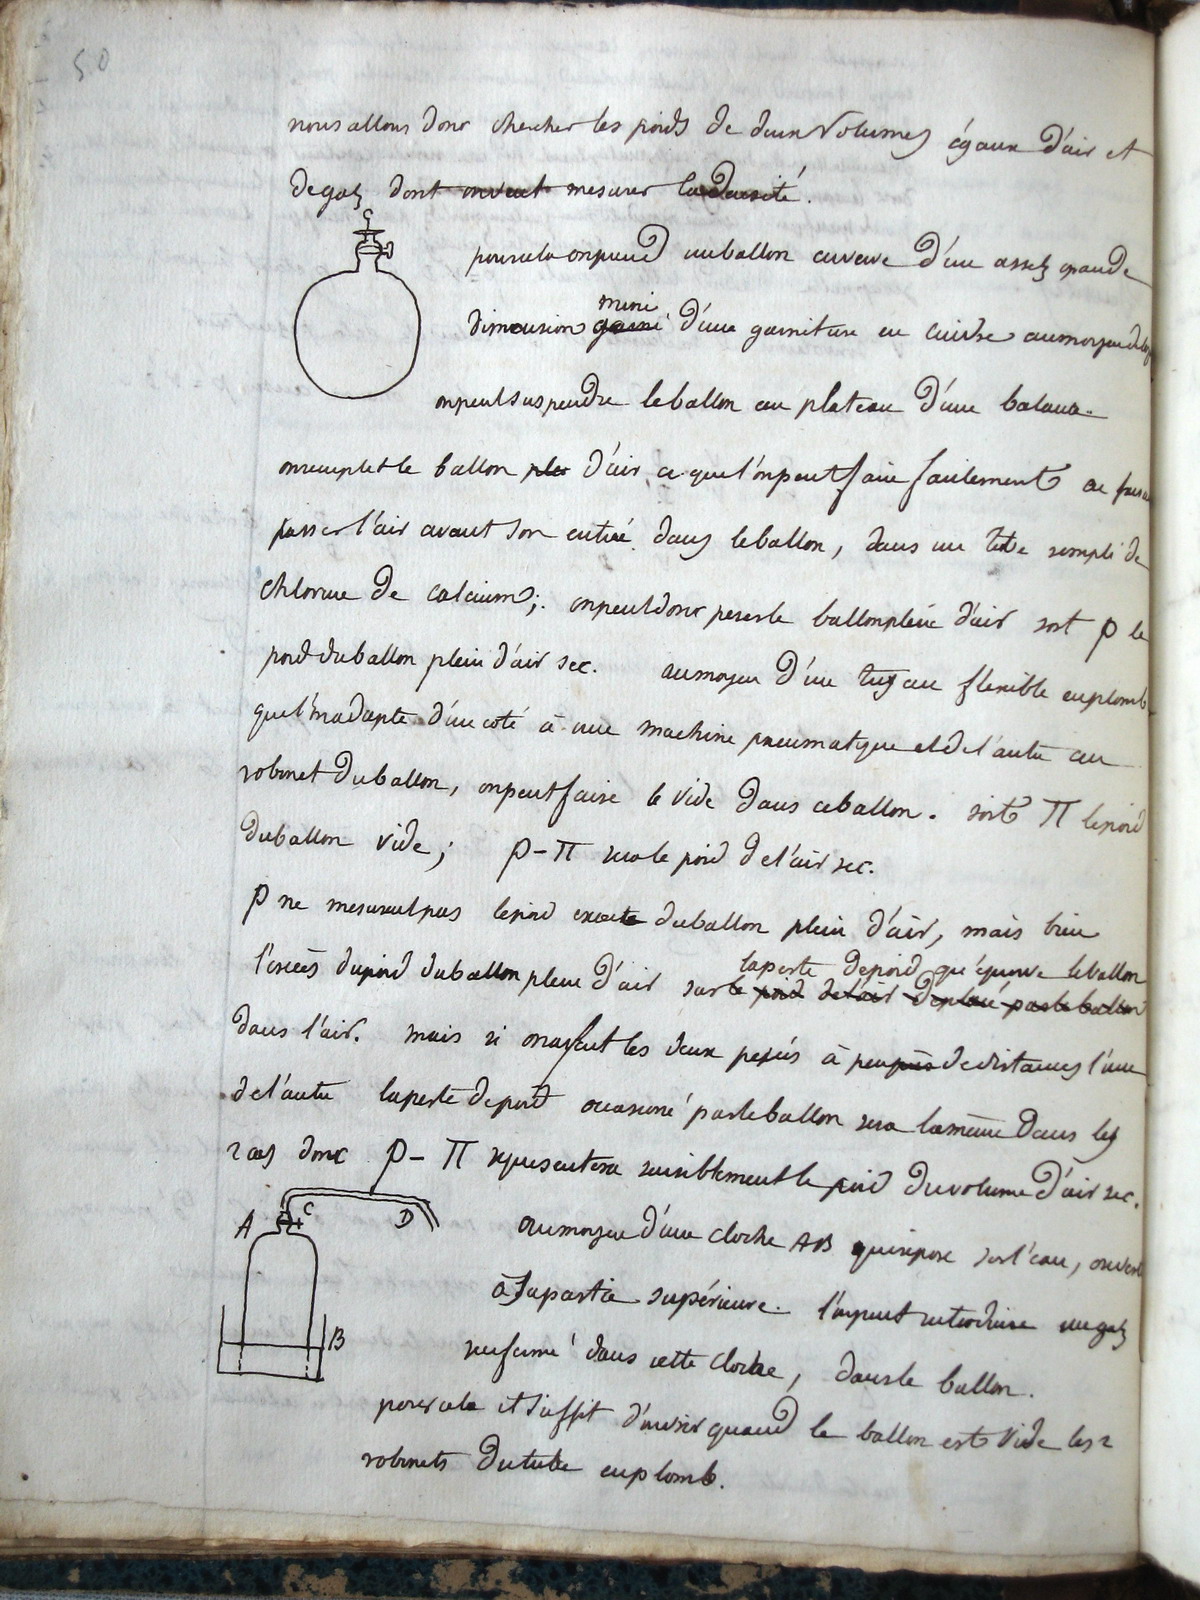 50
nous allons donc chercher les poids de deux volumes égaux d'air et
de gaz dont on veut mesurer la densité.
C
pour cela on prend un ballon en verre d'une assez grande
muni
dimension garni d'une garniture en cuivre au moyen de laq
on peut suspendre le ballon au plateau d'une balance.
on remplit le ballon d'air ce que l'on peut faire facilement en
passer l'air avant son entrée dans le ballon, dans un tube rempli de
chlorure de calcium; on peut donc peser le ballon plein d'air soit p le
poid du ballon plein d'air sec. au moyen d'un tuyau flexible en plomb
que l'on adapte d'un coté à une machine pneumatique et de l'autre au
robinet du ballon, on peut faire le vide dans ce ballon. soit π le poid
du ballon vide; p-π sera le poid de l'air sec.
p ne mesurent pas le poid exacte du ballon plein d'air, mais bien
la perte de poid qu'éprouve le ballon
l'excès du poid du ballon plein d'air sur le poid de l'air deplacé par le ballon
dans l'air. mais si on a fait les deux pesées à peu de distances l'une
de l'autre la perte de poid occasioné par le ballon sera la même dans les
2 cas donc p- π representera sensiblement le poid du volume d'air sec.
A C D
au moyen d'une cloche AB qui repose sur l'eau, ouverte
à sa partie supérieure. l'on peut introduire un gaz
B
renfermé dans cette cloche, dans le ballon.
pour cela il suffit d'ouvrir quand le ballon est vide les 2
robinets du tube en plomb.